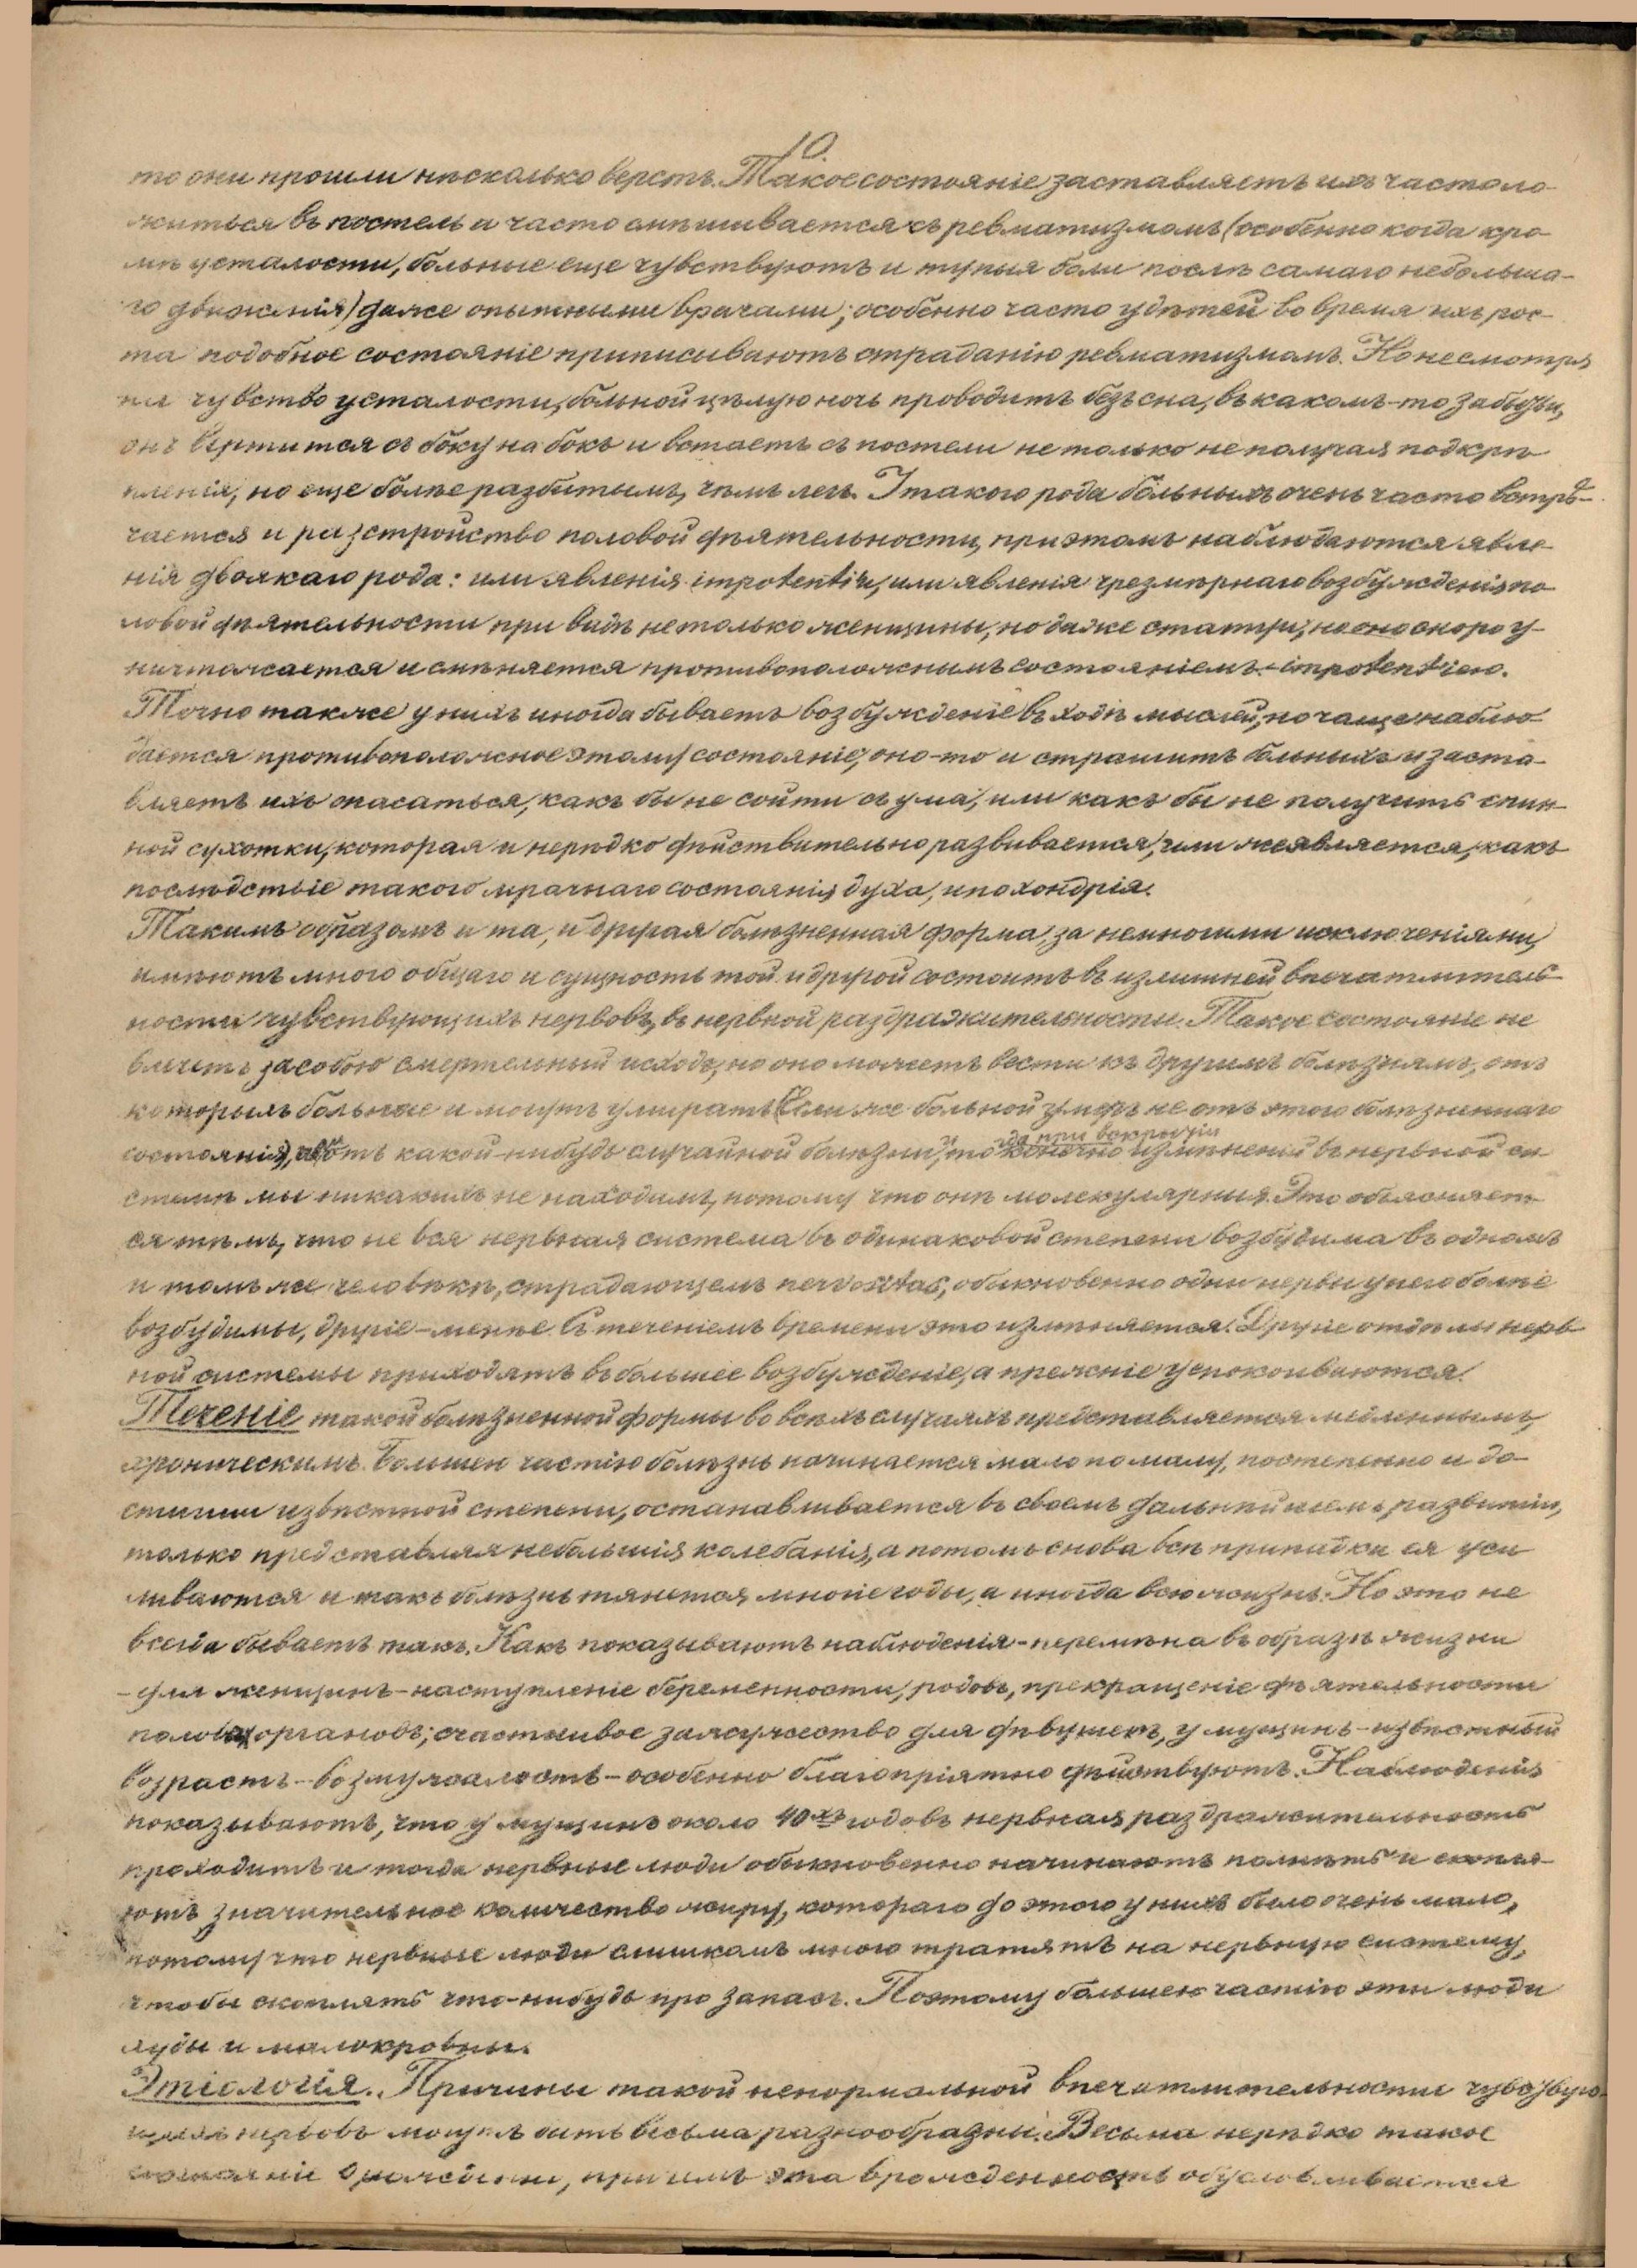 10.
то они прошли нѣсколько верстъ. Такое состояніе заставляетъ ихъ часто ло-
житься въ постель и часто смѣшивается съ ревматизмомъ (особенно когда кро-
мѣ усталости, больные еще чувствуютъ и тупыя боли послѣ самаго небольша-
го движенія) даже опытными врачами; особенно часто у дѣтей во время ихъ рос-
та подобное состояніе приписываютъ страданію ревматизмомъ. Но несмотря
на чувство усталости, больной цѣлую ночь проводитъ безъ сна, въ какомъ-то забытьи,
онъ вертится съ боку на бокъ и встаетъ съ постели не только не получая подкрѣ
пленія, но еще болѣе разбитымъ, чѣмъ легъ. У такого рода больныхъ очень часто встрѣ-
чается и разстройство половой дѣятельности, при этомъ наблюдаются явле-
нія двоякаго рода: или явленія impotentiæ, или явленія чрезмѣрнаго возбужденія по-
ловой дѣятельности при видѣ не только женщины, но даже статуи, но оно скоро у-
ничтожается и смѣняется противоположнымъ состояніемъ - impotentiею.
Точно также у нихъ иногда бываетъ возбужденіе въ ходѣ мыслей, но чаще наблю-
дается противоположное этому состояніе, оно-то и страшитъ больныхъ и заста-
вляетъ ихъ опасаться, какъ бы не сойти съ ума, или какъ бы не получить спин-
ной сухотки, которая и нерѣдко дѣйствительно развивается, или же является, какъ
послѣдствіе такого мрачнаго состоянія духа, ипохондрія.
Такимъ образомъ и та, и другая болѣзненная форма, за немногими исключеніями,
имѣютъ много общаго и сущность той и другой состоитъ въ излишней впечатлитель-
ности чувствующихъ нервовъ, въ нервной раздражительности. Такое состояніе не
влечетъ за собою смертельный исходъ, но оно можетъ вести къ другимъ болѣзнямъ, отъ
которыхъ больные и могутъ умирать (Если же больной умеръ не отъ этого болѣзненнаго
состоянія), а отъ какой-нибудь случайной болѣзни, то конечно при вскрытіи измѣненій въ нервной си-
стемѣ мы никакихъ не находимъ, потому что онѣ молекулярныя. Это объясняет-
ся тѣмъ, что не вся нервная система въ одинаковой степени возбудима въ одномъ
и томъ же человѣкѣ, страдающемъ nervositas, обыкновенно одни нервы у него болѣе
возбудимы, другіе - менѣе. Съ теченіемъ времени это измѣняется. Другіе отдѣлы нерв-
ной системы приходятъ въ большее возбужденіе, а прежніе успокоиваются.
Теченіе такой болѣзненной формы во всѣхъ случаяхъ представляется медленнымъ,
хроническимъ. Большею частію болѣзнь начинается мало по малу, постепенно и до-
стигши извѣстной степени, останавливается въ своемъ дальнѣйшемъ развитіи,
только представляя небольшія колебанія, а потомъ снова всѣ припадки ея уси
ливаются и такъ болѣзнь тянется многіе годы, а иногда всю жизнь. Но это не
всегда бываетъ такъ. Какъ показываютъ наблюденія - перемѣна въ образѣ жизни
- для женщинъ - наступленіе беременности, родовъ, прекращеніе дѣятельности
половыхъ органовъ; счастливое замужество для дѣвушекъ, у мущинъ - извѣстный
возрастъ - возмужалость - особенно благопріятно дѣйствуютъ. Наблюденія
показываютъ, что у мущинъ около 40хъ годовъ нервная раздражительность
проходитъ и тогда нервные люди обыкновенно начинаютъ полнѣть и скопля-
ютъ значительное количество жиру, котораго до этого у нихъ было очень мало,
потому что нервные люди слишкомъ много тратятъ на нервную систему,
чтобы скоплять что-нибудь про запасъ. Поэтому большею частію эти люди
худы и малокровны.
Этіологія. Причины такой ненормальной впечатлительности чувствую-
щихъ нервовъ могутъ быть весьма разнообразны. Весьма нерѣдко такое
состояніе врождённо, при чемъ эта врожденность обусловливается